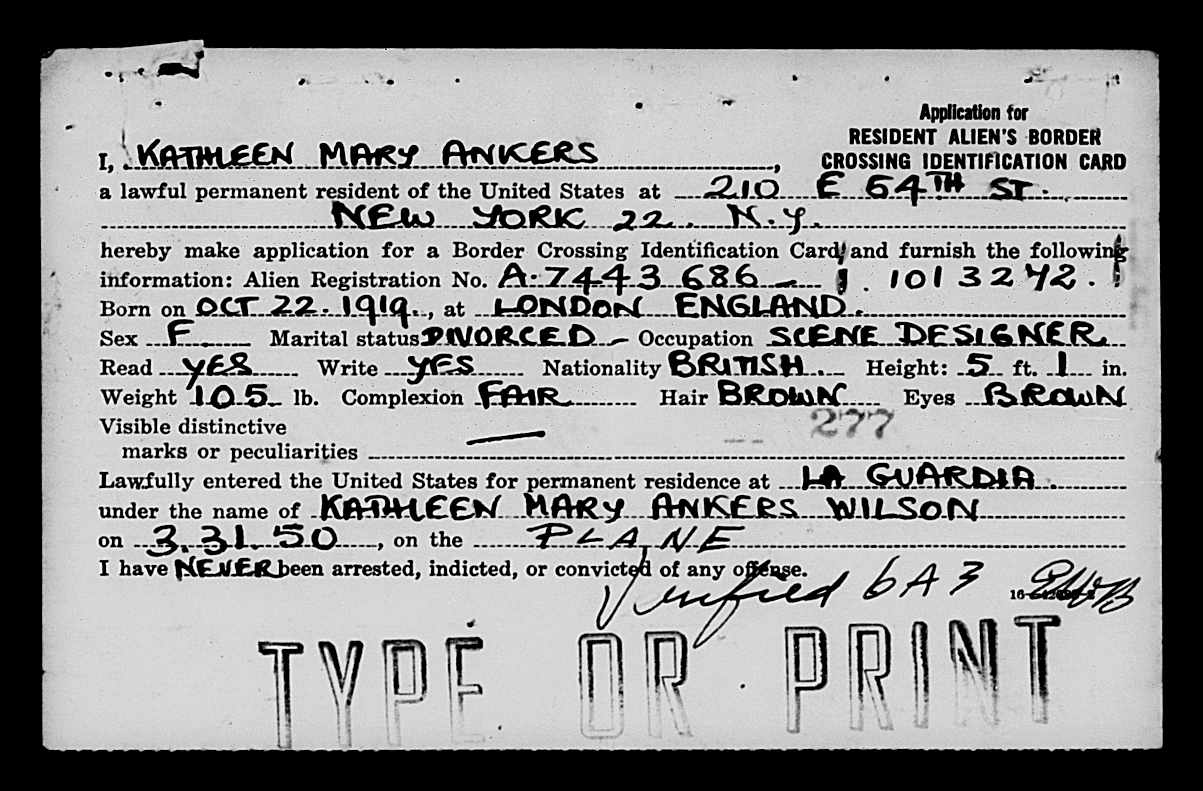 Application for
RESIDENT ALIEN'S BORDER
CROSSING IDENTIFICATION CARD
I, KATHLEEN MARY ANKERS,
a lawful permanent resident of the United States at 210 E 64TH ST.
NEW YORK 22. N.Y.
hereby make application for a Border Crossing Identification Card, and furnish the following
information: Alien Registration No. A-7443 686 1013272.
Born on OCT 22. 1919., at LONDON ENGLAND.
Sex F. Marital status DIVORCED Occupation SCENE DESIGNER
Read YES Write YES Nationality BRITISH. Height: 5 ft. 1 in.
Weight 105 lb. Complexion FAIR Hair BROWN Eyes BROWN
Visible distinctive 277
marks or peculiarities —
Lawfully entered the United States for permanent residence at LA GUARDIA.
under the name of KATHLEEN MARY ANKERS WILSON
on 3.31.50, on the PLANE
I have NEVER been arrested, indicted, or convicted of any offense.
Verified 6A3
TYPE OR PRINT